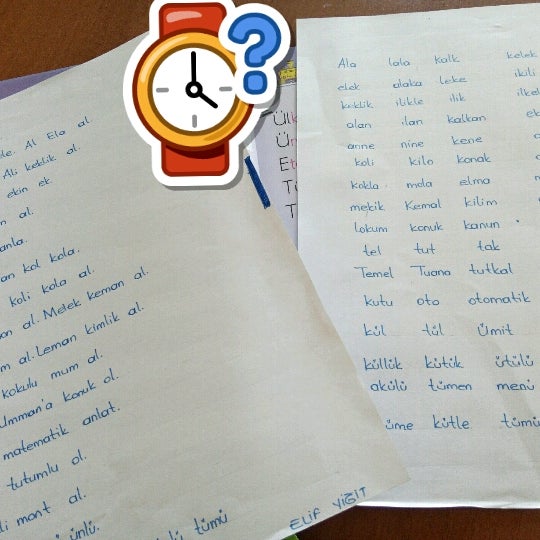 Al Ela al.
Ali keklik al.
ekin ek.
al.
kol kola.
koli kola al.
al. Melek keman al.
al. Leman kimlik al.
kokulu mum al.
Umman'a konuk ol.
matematik anlat.
tutumlu ol.
mont al.
ünlü.
tümü
ELİF YİĞİT
Ala lala kalk kelek
elek alaka leke ikili
keklik ilikle ilik
alan ilan kalkan
anne nine kene
koli kilo konak
kokla mola elma
mekik Kemal kilim
lokum konuk kanun
tel tut tak
Temel Tuana tutkal
kutu oto otomatik
kül tül Ümit
küllük kütük ütülü
akülü tümen menü
üme kütle tümü